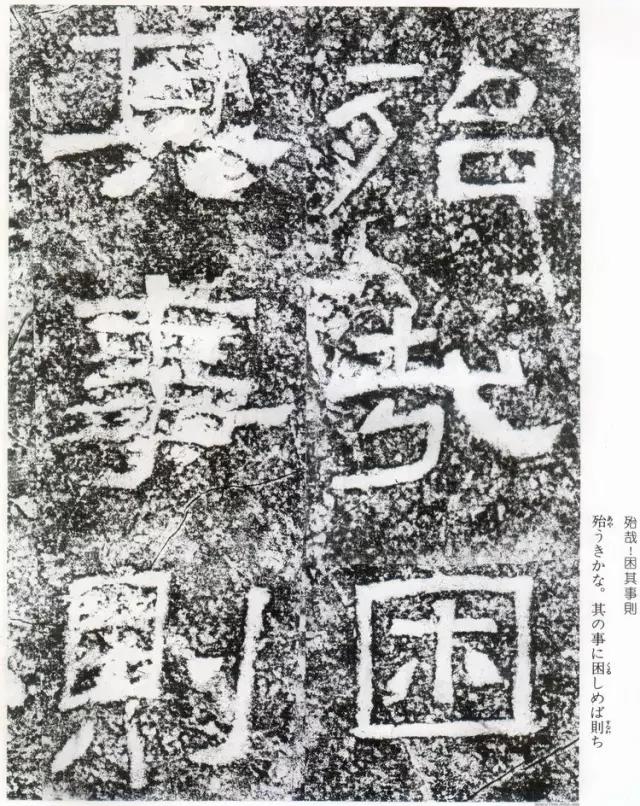 殆哉!困其事則
殆うきかな。其の事に困しめば則ち
殆哉困
其事則